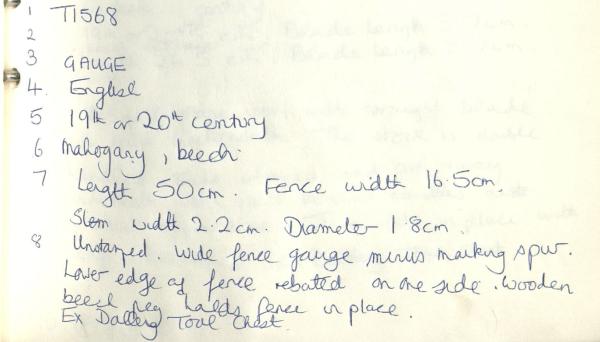 1 T1568
2
3 GAUGE
4. English
5 19th or 20th century
6 Mahogany, beech.
7 Length 50cm. Fence width 16.5cm.
Stem width 2.2cm. Diameter 1.8cm.
8 Unstamped. Wide fence gauge minus marking spur.
Lower edge of fence rebated on one side. Wooden
beech peg holds fence in place.
Ex Tool Chest.